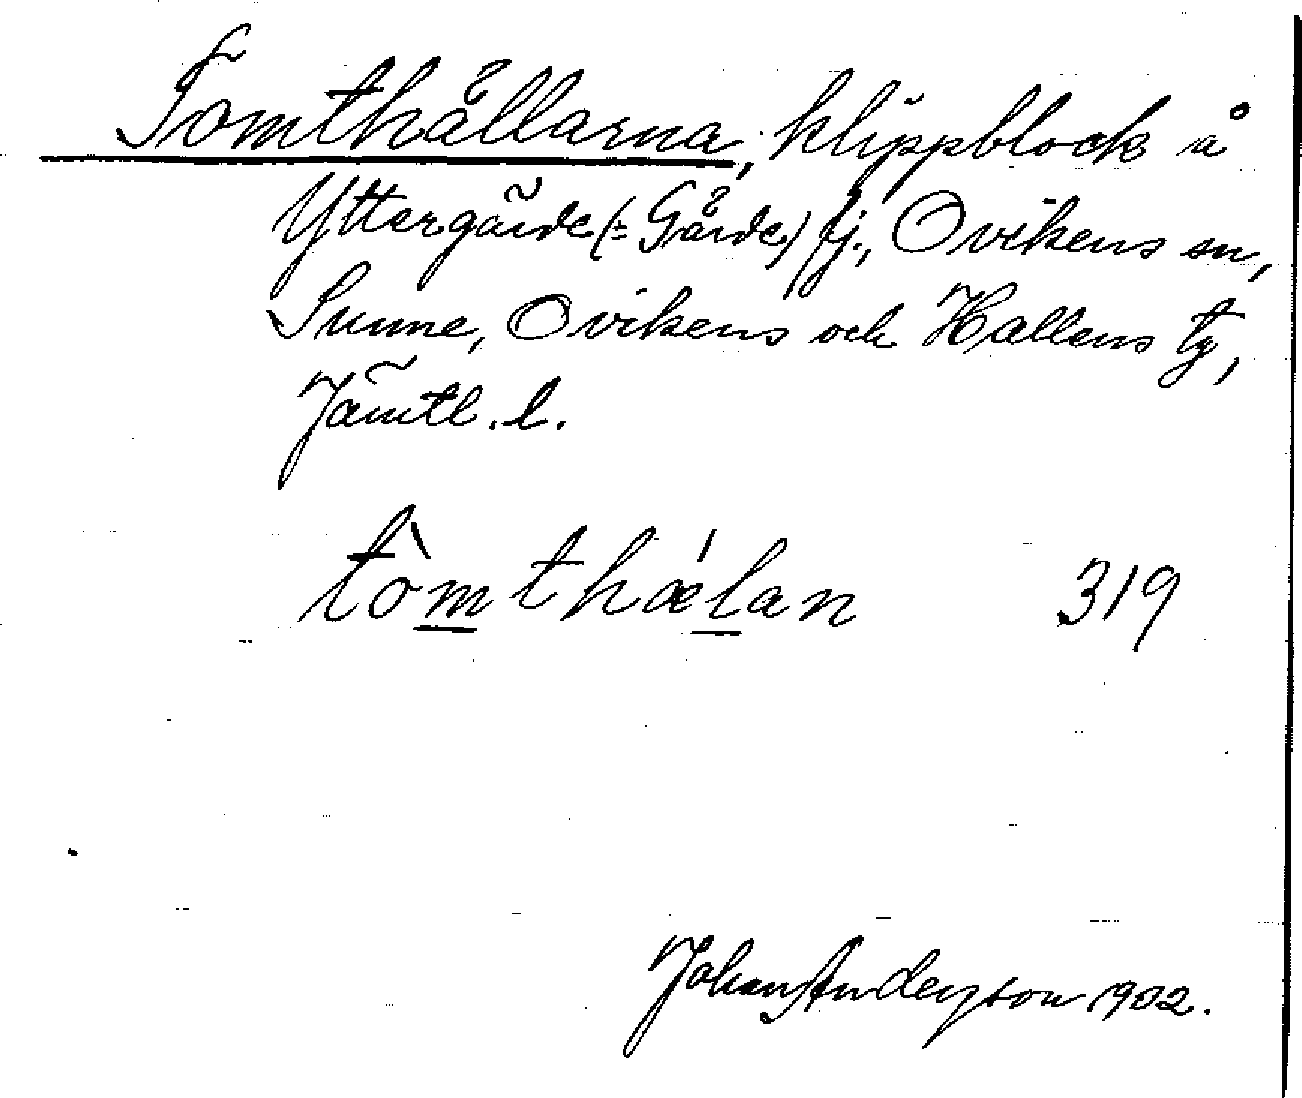 Tomthållarna, klippblock å
Yttergärde(=Gårde) fj., Ovikens sn,
Sunne, Ovikens och Hallens tg,
Jämtl. l.
tòmthǽlan 319
Johan Anderson 1902.